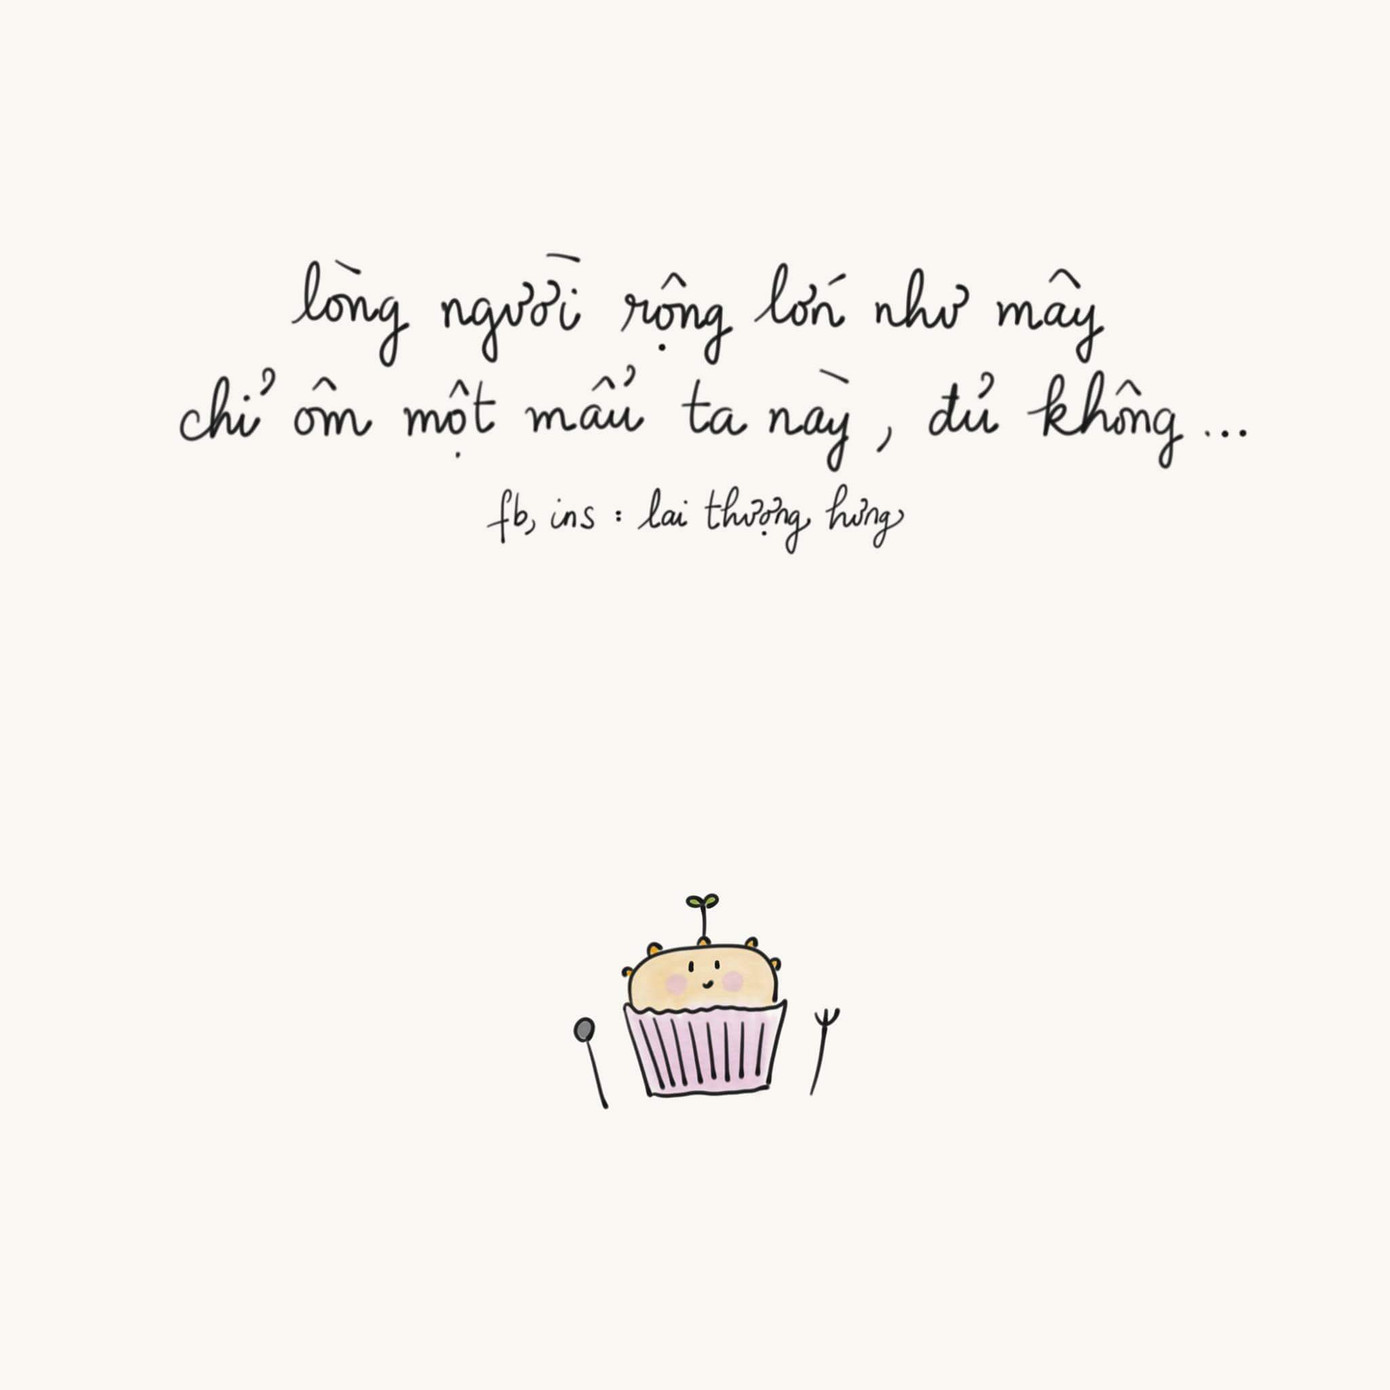 lòng người rộng lớn như mây
chỉ ôm một mẩu ta này, đủ không...
fb, ins : lai thượng hưng